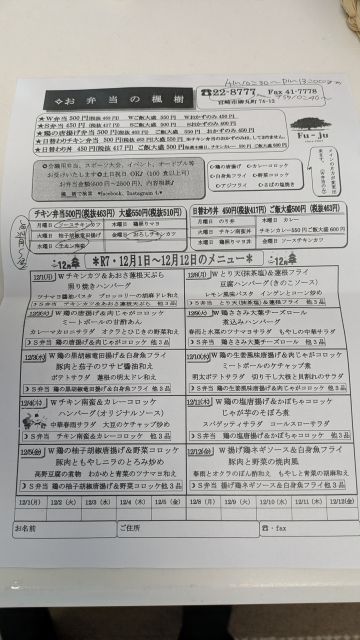 ◇お弁当の楓樹
☎22-8777 Fax 41-7778
★W弁当 500円(税抜463円) Wご飯大盛 550円 Wおかずのみ 450円
★S弁当 450円(税抜417円) Sご飯大盛 500円 Sおかずのみ 400円
★鶏の唐揚げ弁当 500円(税抜463円) ご飯大盛 550円 おかずのみ 450円
Fu-ju
◇会議用弁当、スポーツ大会、イベント、オードブル等
お受けいたします◆土日祝日 OK♪
お弁当金額(600円~2500円)、内容相談♪
◇鶏の唐揚げ ◇カレーコロッケ
◇白身魚フライ ◇野菜コロッケ
◇アジフライ ◇さばの塩焼き
チキン弁当500円(税抜463円) 大盛550円(税抜510円)
日替わり丼 450円(税抜417円) ご飯大盛 500円(463円)
月曜日 のり弁 木曜日 カレー
水曜日 鶏照りマヨ丼 金曜日 ソースチキンカツ
*R7・12月1日~12月12日のメニュー*
12/1(月) Wチキンカツ&あおさ蓮根天ぷら
照り焼きハンバーグ
ツナマヨ醤油パスタ ブロッコリーの胡麻ドレ和え
12/2(火) W鶏の唐揚げ&肉じゃがコロッケ
ミートボールの甘酢あん
カレーマカロニサラダ オクラとひじきの野菜和え
☽S弁当 鶏の唐揚げ&肉じゃがコロッケ 他3品
12/3(水) W鶏の黒胡椒竜田揚げ&白身魚フライ
豚肉と茄子のワサビ醤油和え
ポテトサラダ 蓮根の明太ドレ和え
☽S弁当 鶏の黒胡椒竜田揚げ&白身魚フライ 他3品
12/4(木) Wチキン南蛮&カレーコロッケ
ハンバーグ(オリジナルソース)
中華春雨サラダ 大豆のケチャップ炒め
☽S弁当 チキン南蛮&カレーコロッケ 他3品
12/5(金) W鶏の柚子胡椒唐揚げ&野菜コロッケ
豚肉ともやしニラのとろみ炒め
高野豆腐の煮物 わかめと青菜のツナマヨ和え
☽S弁当 鶏の柚子胡椒唐揚げ&野菜コロッケ 他3品
12/8(月) Wとり天(抹茶塩)&蓮根フライ
豆腐ハンバーグ(きのこソース)
レモン風味パスタ インゲンとコーン炒め
☽S弁当 とり天(抹茶塩)&蓮根フライ 他3品
12/9(火) W鶏ささみ大葉チーズロール
煮込みハンバーグ
春雨と木耳のツナマヨサラダ もやしの中華サラダ
☽S弁当 鶏ささみ大葉チーズロール 他3品
12/10(水) W鶏の生姜風味唐揚げ&肉じゃがコロッケ
ミートボールのケチャップ煮
明太ポテトサラダ 切り干し大根と貝割れのサラダ
☽S弁当 鶏の生姜風味唐揚げ&肉じゃがコロッケ 他3品
12/11(木) W鶏の塩唐揚げ&かぼちゃコロッケ
じゃが芋のそぼろ煮
スパゲッティサラダ コールスローサラダ
☽S弁当 鶏の塩唐揚げ&かぼちゃコロッケ 他3品
12/12(金) W揚げ鶏ネギソース&白身魚フライ
豚肉と野菜の焼肉風
春雨とオクラのぽん酢和え もやしと青菜の胡麻和え
☽S弁当 揚げ鶏ネギソース&白身魚フライ 他3品
12/1(月) 12/2(火) 12/3(水) 12/4(木) 12/5(金) 12/8(月) 12/9(火) 12/10(水) 12/11(木) 12/12(金)
お名前 ご住所 ☎・fax